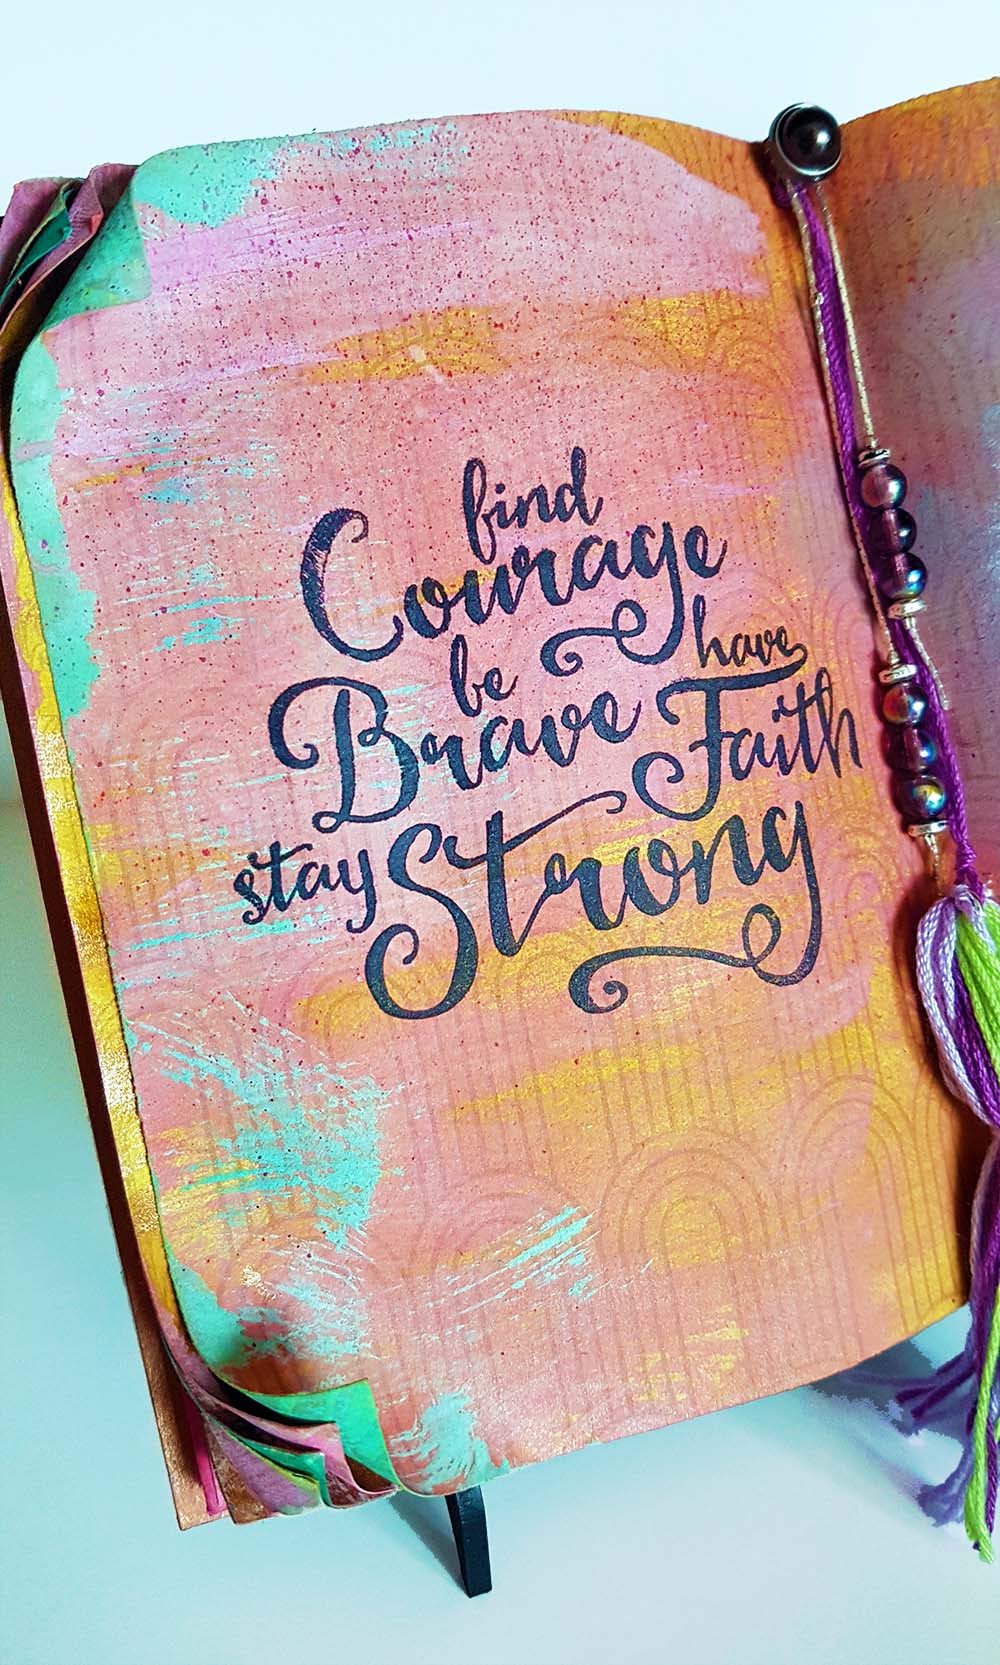 find
Courage
be have
Brave Faith
stay Strong